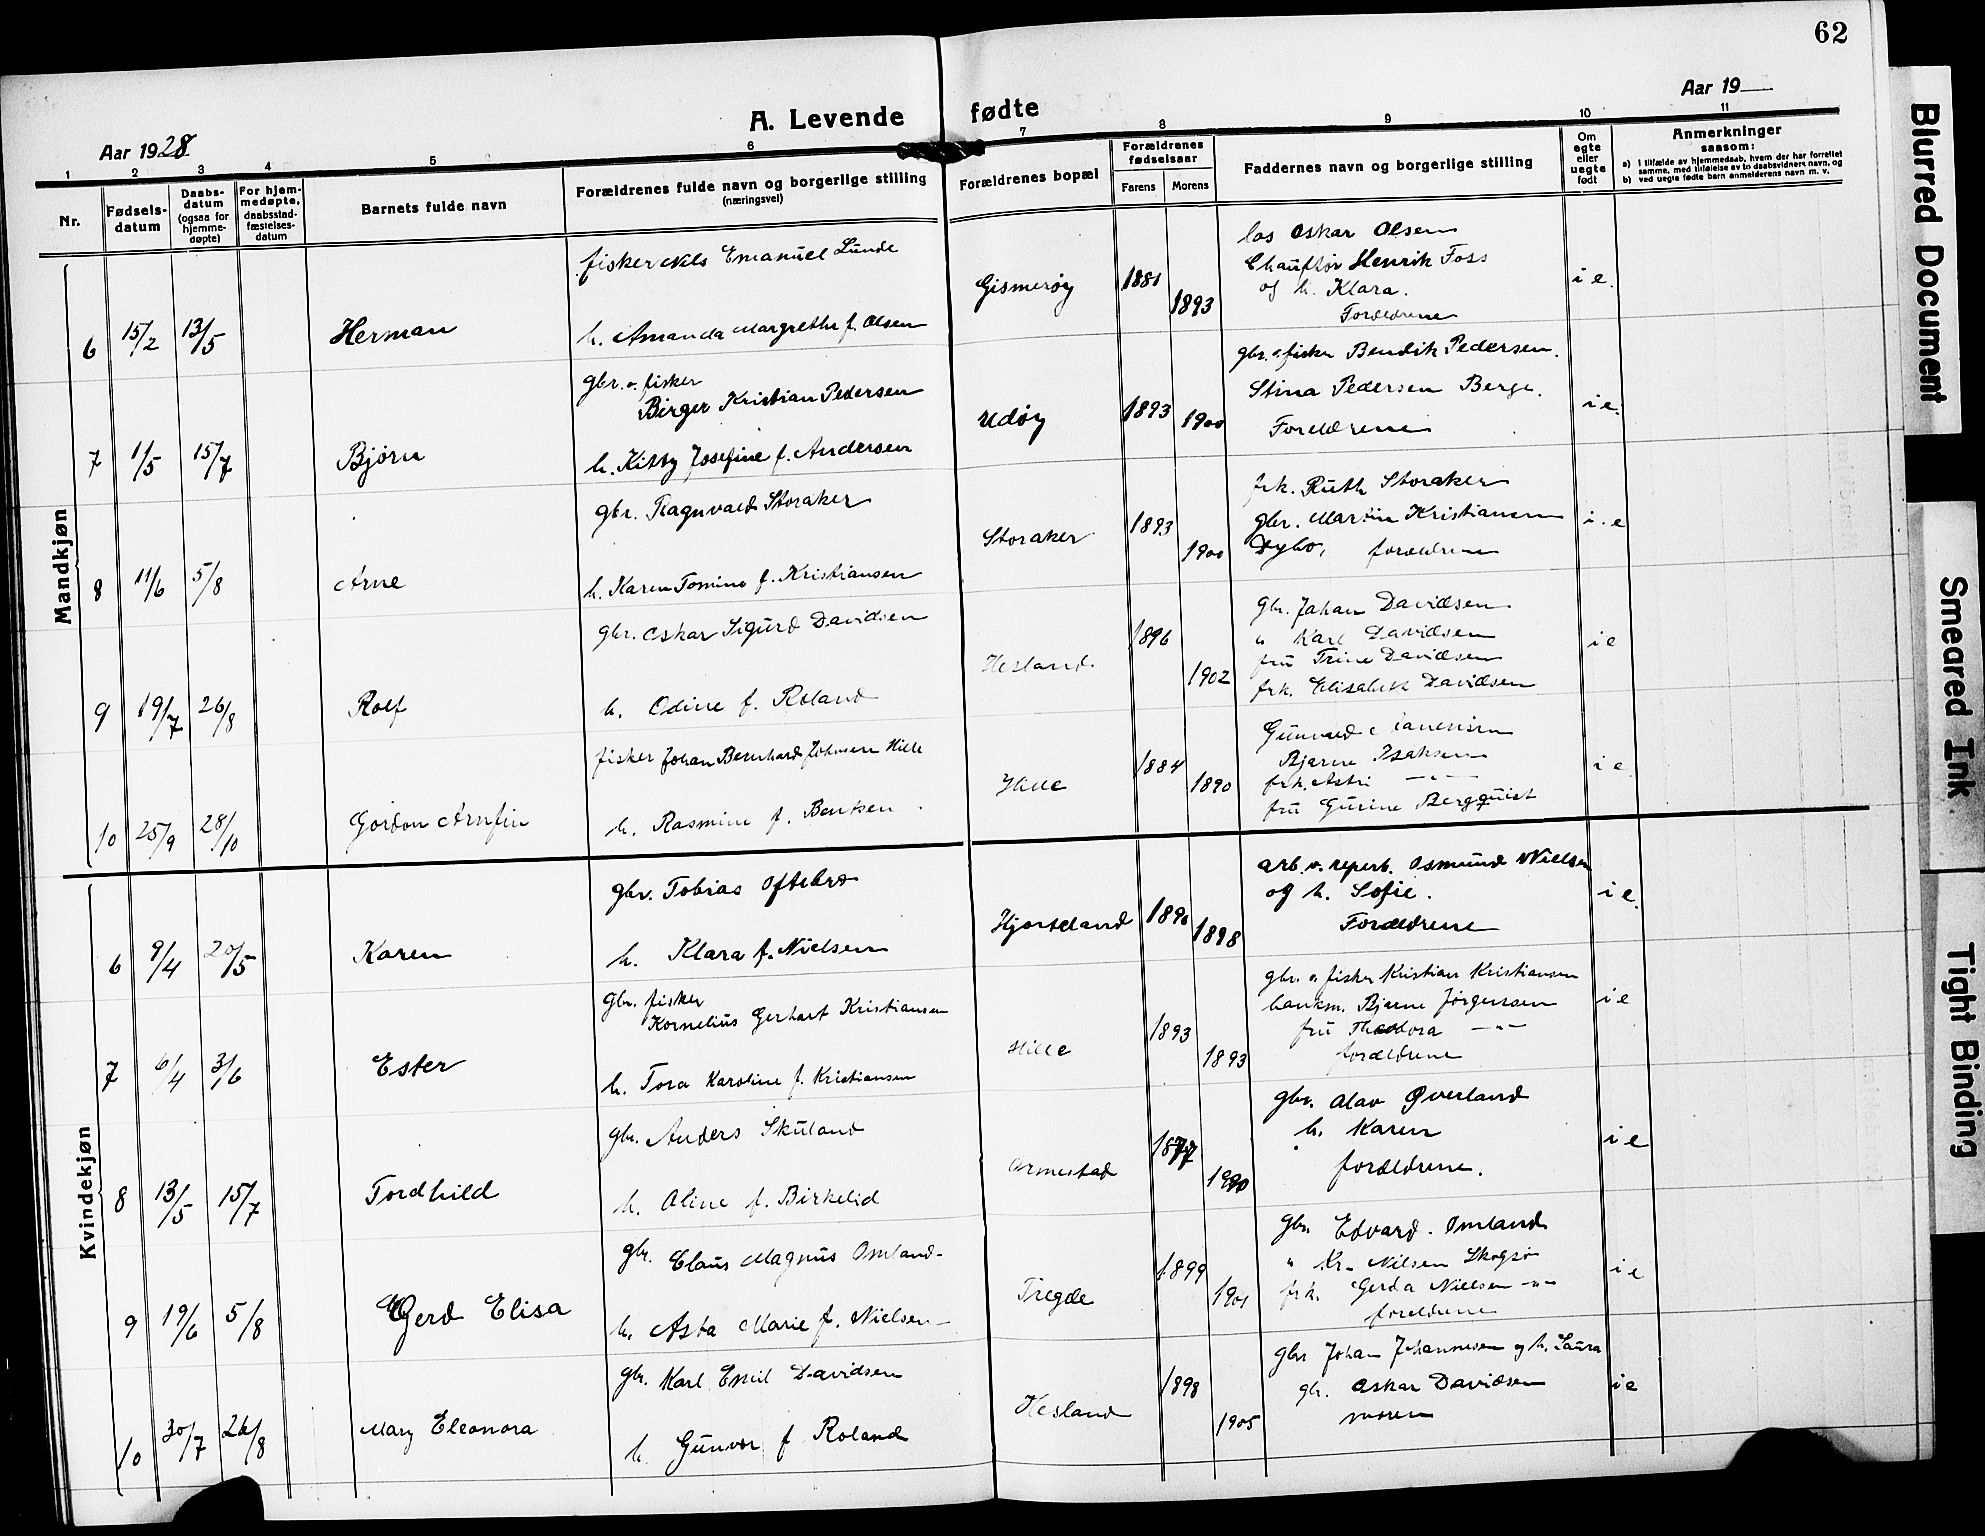 62
A. Levende fødte
Aar 1928
Aar 19
1 2 3 4 5 6 7 8 9 10 11
Nr.
Fødsels-
datum
Daabs-
datum
(ogsaa for
hjemme-
døpte)
For hjem-
medøpte,
daabsstad-
fæstelses-
datum
Barnets fulde navn
Forældrenes fulde navn og borgerlige stilling
(næringsvei)
Forældrenes bopæl
Forældrenes
fødselsaar
Farens Morens
Faddernes navn og borgerlige stilling
Om
egte
eller
uegte
født
Anmerkninger
saasom:
a) i tilfælde av hjemmedaab, hvem der har forrettet
samme, med tilføielse av to daabsvidners navn, og
b) ved uegte fødte barn anmelderens navn m. v.
Mandkjøn
6 15/2 13/5 Herman
fisker Nils Emanuel Lunde
h. Amanda Margrethe f. Olsen
Gismerøy 1881 1893
los Oskar Olsen
Chauffør Henrik Foss
og h. Klara.
Forældrene
i e.
7 11/5 15/7 Bjørn
gbr. o. fisker
Birger Kristian Pedersen
h. Kitty Josefine f. Andersen
Udøy 1893 1900
gbr. o fisker Bendik Pedersen.
Stina Pedersen Berge.
Forældrene
i e.
8 11/6 5/8 Arne
gbr. Ragnvald Storaker
h. Karen Tomine f. Kristiansen
Storaker 1893 1900
frk. Ruth Storaker
gbr. Martin Kristiansen
Dybo, forældrene
i. e
9 19/7 26/8 Rolf
gbr. Oskar Sigurd Davidsen
h. Odine f. Roland
Hesland. 1896 1902
gbr. Johan Davidsen.
" Karl Davidsen
fru Trine Davidsen
frk. Elisabeth Davidsen
i e
10 25/9 28/10 Gordon Arnfin
fisker Johan Bernhard Johnsen Hille
h. Rasmine f. Bentsen
Hille 1884 1890
Gunvald
Bjarne Isaksen
frk. Astri — " —
fru Gurine Bergquist
i e
Kvindekjøn
6 9/4 20/5 Karen
gbr. Tobias Oftebro
h. Klara f. Nielsen
Hjorteland 1890 1898
arb. v. reperb. Osmund Nielsen
og h. Sofie.
Forældrene
i e.
7 6/4 3/6 Ester
gbr. fisker
Kornelius Gerhart Kristiansen
h. Tora Karoline f. Kristiansen
Hille 1893 1893
gbr. o. fisker Kristian Kristiansen
bankm. Bjarne Jørgensen
fru Theodora — " —
forældrene
i e
8 13/5 15/7 Tordhild
gbr. Anders Skuland
h. Oline f. Birkelid
Ormestad 1877 1890
gbr. Olav Øverland
h. Karen
forældrene.
i e
9 19/6 5/8 Gerd Elisa
gbr. Claus Magnus Omland-
h. Asta Marie f. Nielsen-
Tregde 1899 1901
gbr. Edvard. Omland
" Kr. Nilsen Skogsø
frk. Gerda Nielsen — " —
foreldrene
i e
10 30/7 26/8 Mary Eleonora
gbr. Karl Emil Davidsen
h. Gunvor f Roland
Hesland 1898 1905
gbr Johan Johannesen og h. Laura
gbr. Oskar Davidsen
moren
i e
Blurred Document
Smeared Ink
Tight Binding